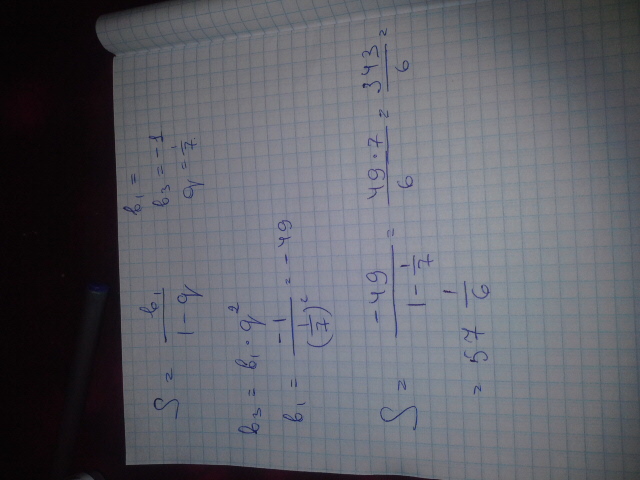 b₁ =
b₃ = -1
q = 1/7
S = b₁/(1 - q)
b₃ = b₁ · q²
b₁ = -1/(1/7)² = -49
S = -49/(1 - 1/7) = 49·7/6 = 343/6 =
= 57 1/6